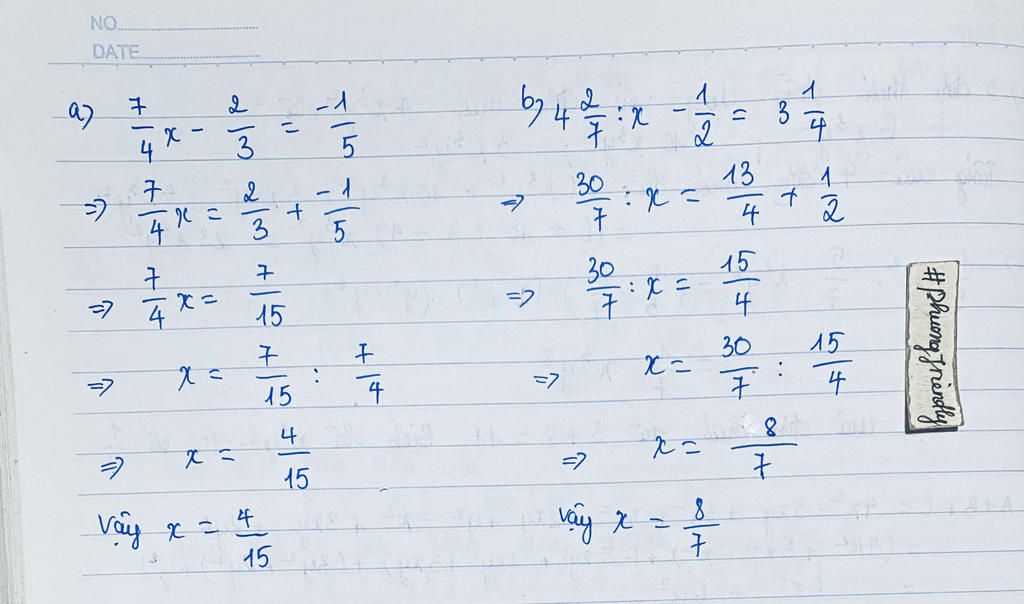 NO.
DATE
a) 7/4 x - 2/3 = -1/5
=> 7/4 x = 2/3 + -1/5
=> 7/4 x = 7/15
=> x = 7/15 : 7/4
=> x = 4/15
Vậy x = 4/15
b) 4 2/7 : x - 1/2 = 3 1/4
=> 30/7 : x = 13/4 + 1/2
=> 30/7 : x = 15/4
=> x = 30/7 : 15/4
=> x = 8/7
Vậy x = 8/7
#phuongfriendly